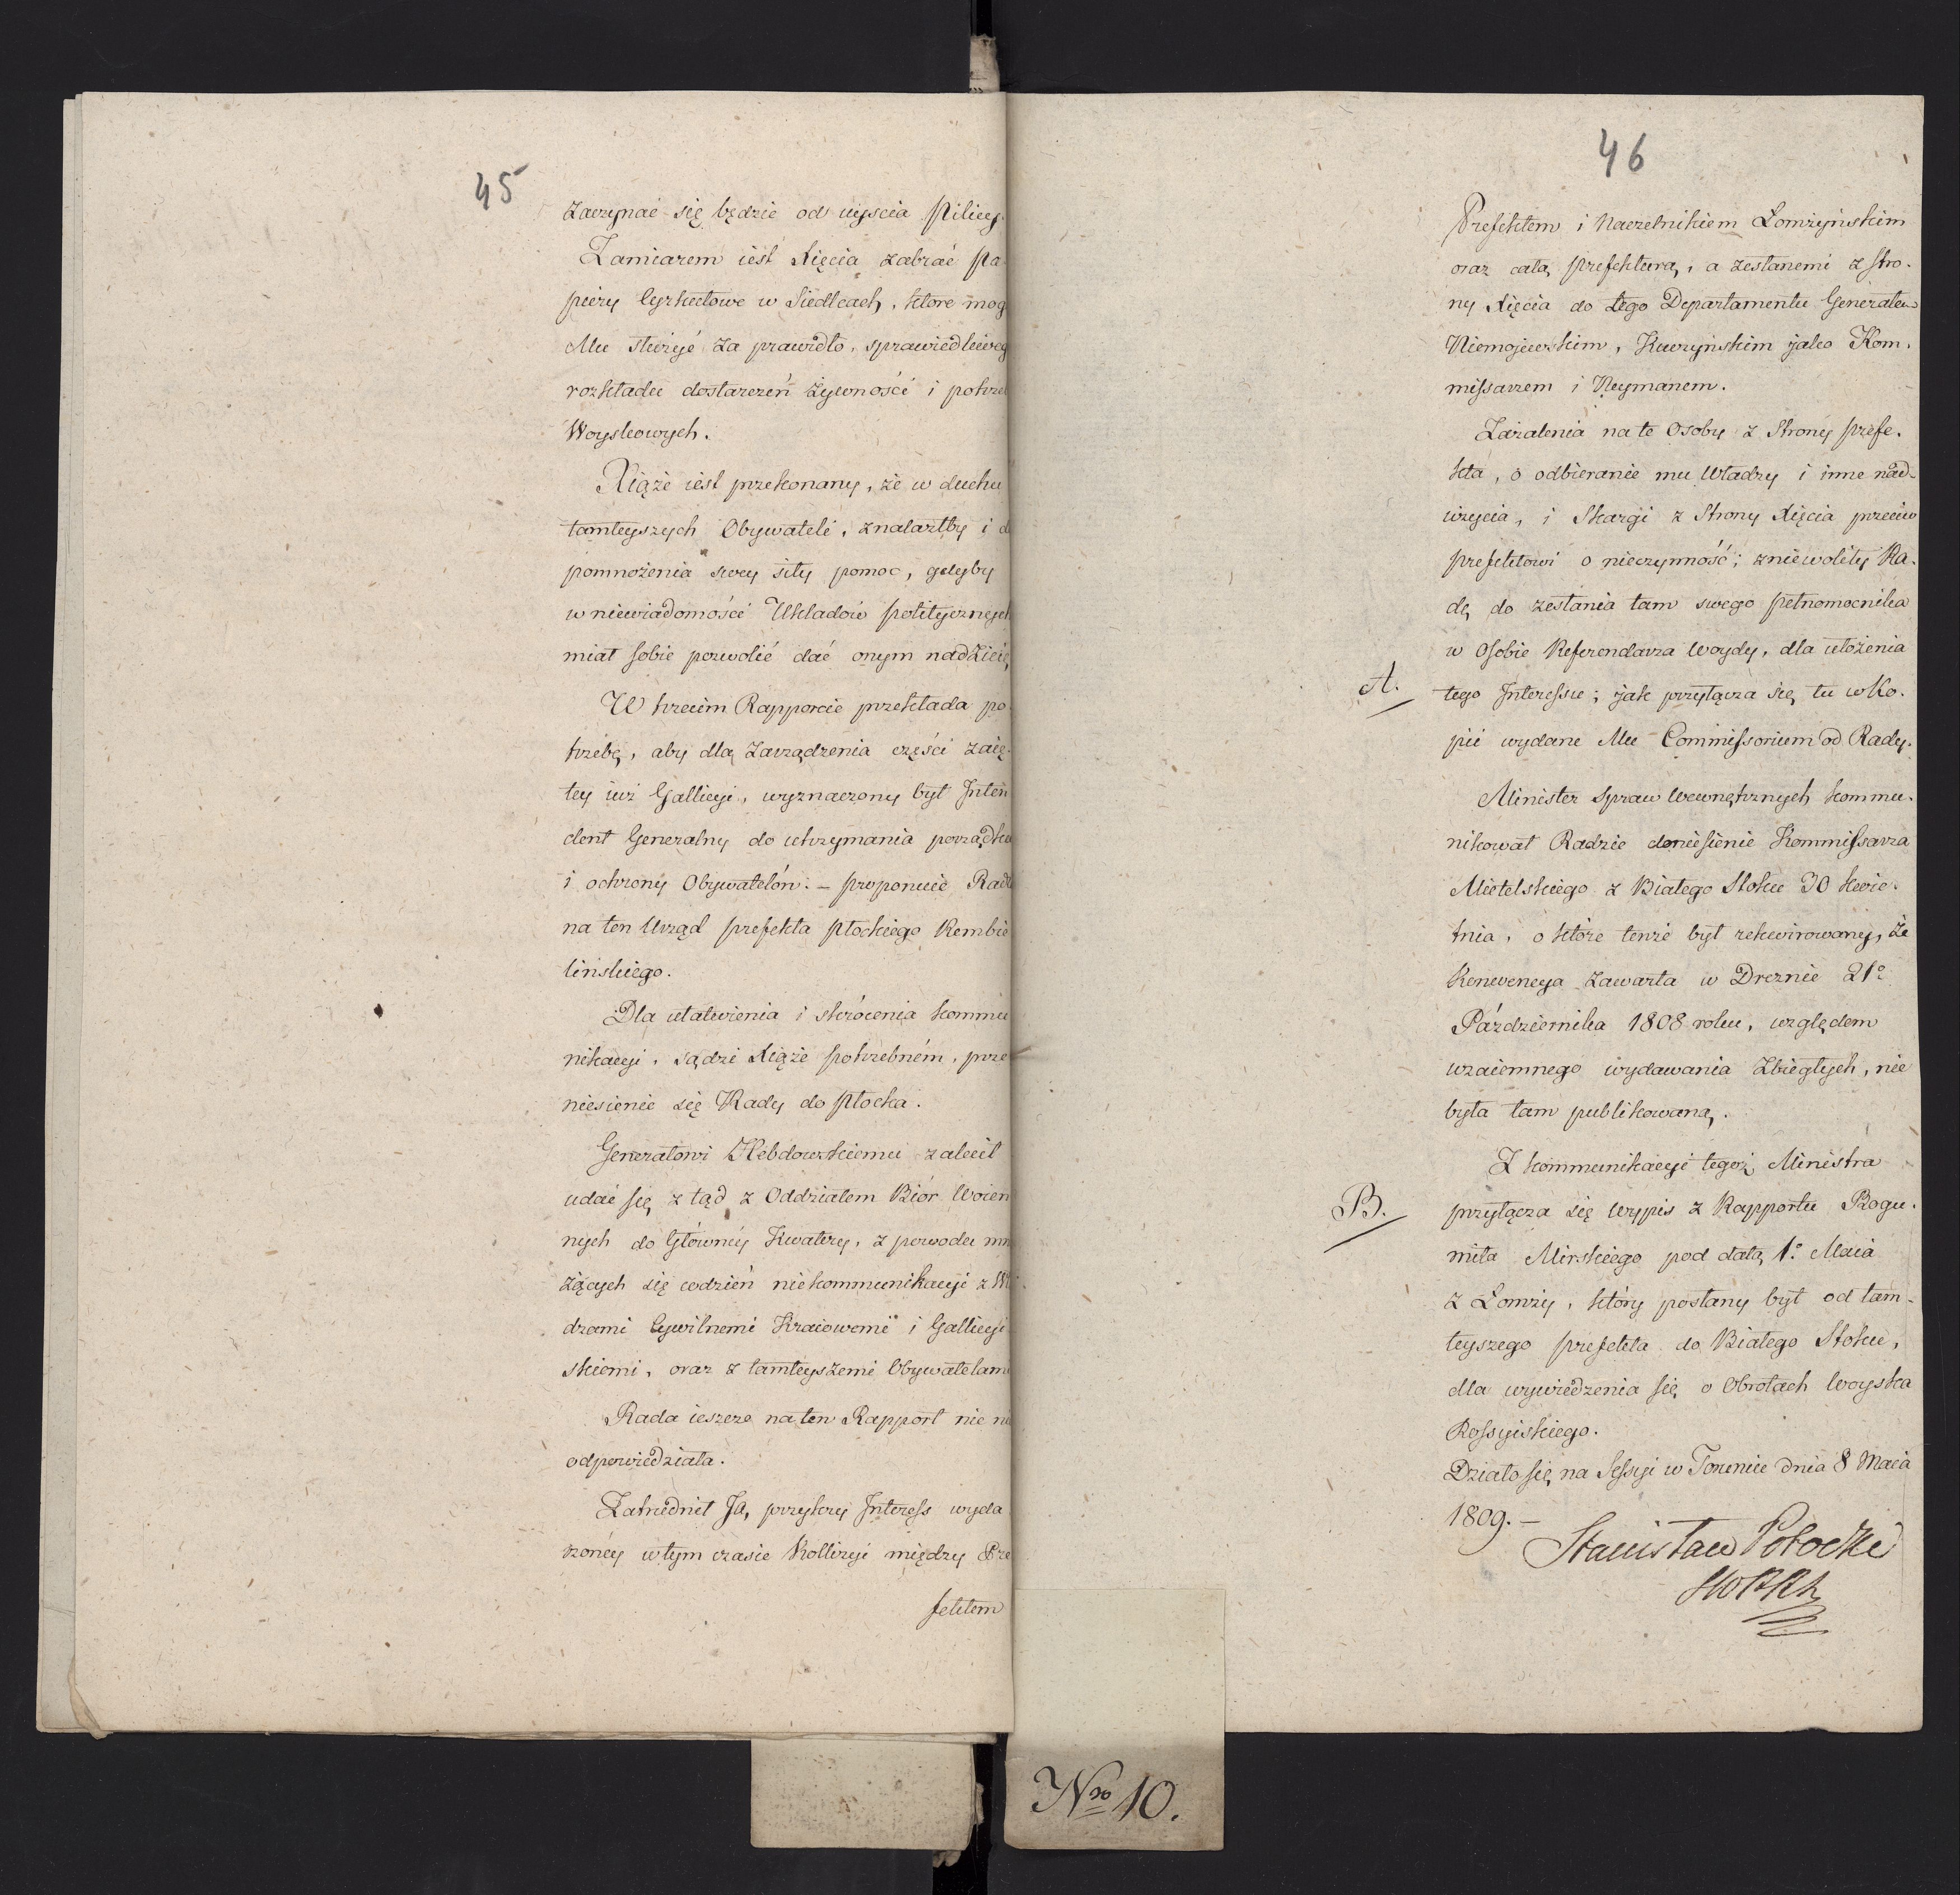 45
zaczynać się będzie od uyścia Pilicy.
Zamiarem iest Xięcia zabrać Pa-
piéry Cyrkułowe w Siedlcach, które mog
Mu służyć za prawidło, sprawiedliweg
rozkładu dostarczeń żywności i potrze
Woyskowych.
Xiąże iest przekonany, że w duchu
tamteyszych Obywateli, znalazłby i d
pomnożenia swey siły pomoc, gdyby
w niewiadomości Układów politycznych
miał sobie pozwolić dać onym nadzieię,
W trzecim Rapporcie przekłada po-
trzebę, aby dla zarządzenia części zaię-
tey iuż Gallicyi, wyznaczony był Inten
dent Generalny do utrzymania porządku
i ochrony Obywatelów. – proponuie Radz
na ten Urząd prefekta Płockiego Rembie
lińskiego.
Dla ułatwienia i skrócenia kommu
nikacyi, sądzi Xiąże potrzebném, prze
niesienie się Rady do Płocka.
Generałowi Hebdowskiemu zalecił
udać się z tąd z Oddziałem Biór Woien
nych do Główney Kwatery, z powodu mn
żących się codzień niekommunikacyi z Wł
dzami Cywilnemi Kraiowemi i Gallicyi
skiemi, oraz z tamteyszemi Obywatelami
Rada ieszcze na ten Rapport nic ni
odpowiedziała.
Zatrudnił Ją, przykry Interess wyda
rzoney w tym czasie Kollizyi między Pre
fektem
46
Prefektem i Naczelnikiem Łomżyńskim
oraz całą prefekturą, a zesłanemi z stro-
ny Xięcia do tego Departamentu Generałem
Niemojewskim, Kuczyńskim jako Kom-
missarzem i Neymanem.
Zażalenia na te Osoby z Strony prefe-
kta, o odbieranie mu Władzy i inne nad-
użycia, i Skargi z Strony Xięcia przeciw
prefektowi o nieczynność; zniewoliły Ra-
dę do zesłania tam swego pełnomocnika
w Osobie Referendarza Woydy, dla ułożenia
A. tego Interessu; jak przyłącza się tu w Ko-
pii wydane Mu Commissorium od Rady.
Minister Spraw Wewnętrznych kommu-
nikował Radzie doniesienie Kommissarza
Mietelskiego z Białego Stoku 30 kwie-
tnia, o które tenże był rekwirowany, że
Konwencya zawarta w Dreznie 21º
Października 1808 roku, względem
wzaiemnego wydawania Zbiegłych, nie
była tam publikowaną.
Z kommunikacyi tegoż Ministra
B. przyłącza się wypis z Rapportu Bogu-
miła Mirskiego pod datą 1º Maia
z Łomży, który posłany był od tam-
teyszego prefekta do Białego Stoku,
dla wywiedzenia się o Obrotach Woyska
Rossyiskiego.
Działo się na Sessyi w Toruniu dnia 8 Maia
1809. –
Stanisław Potocki
Nro 10.